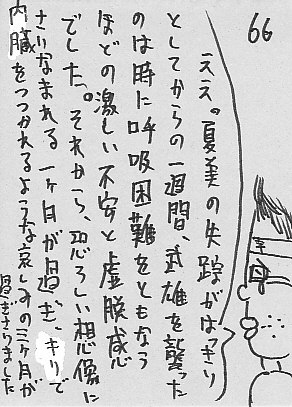 66
ええ。夏美の失踪がはっきり
としてからの一週間、武雄を襲った
のは時に呼吸困難をともなう
ほどの激しい不安と虚脱感
でした。それから、恐ろしい想像に
さいなまれる一ヶ月が過ぎ、キリで
内臓をつつかれるような哀しみの三ヶ月が
過ぎさりました
母